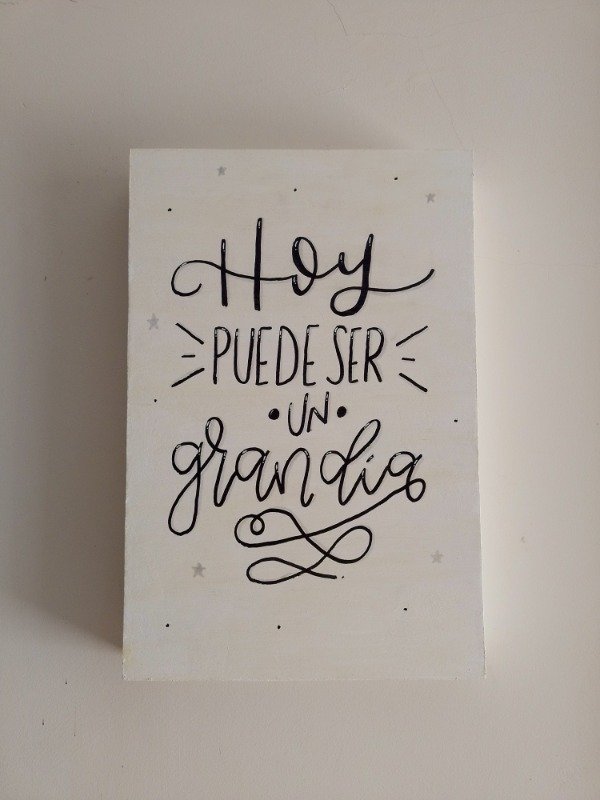 Hoy
PUEDE SER
• UN •
gran dia